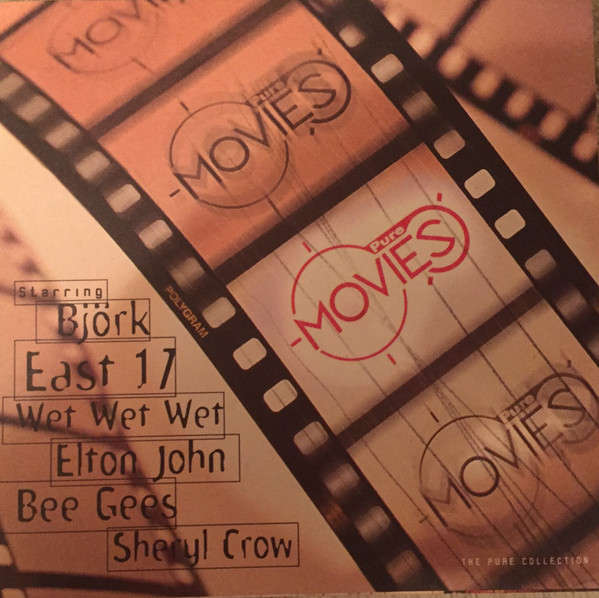 MOVIES
Pure
MOVIES
Pure
MOVIES
Starring
Björk
POLYGRAM
East 17
Wet Wet Wet
Elton John
Bee Gees
Sheryl Crow
Pure
MOVIES
THE PURE COLLECTION